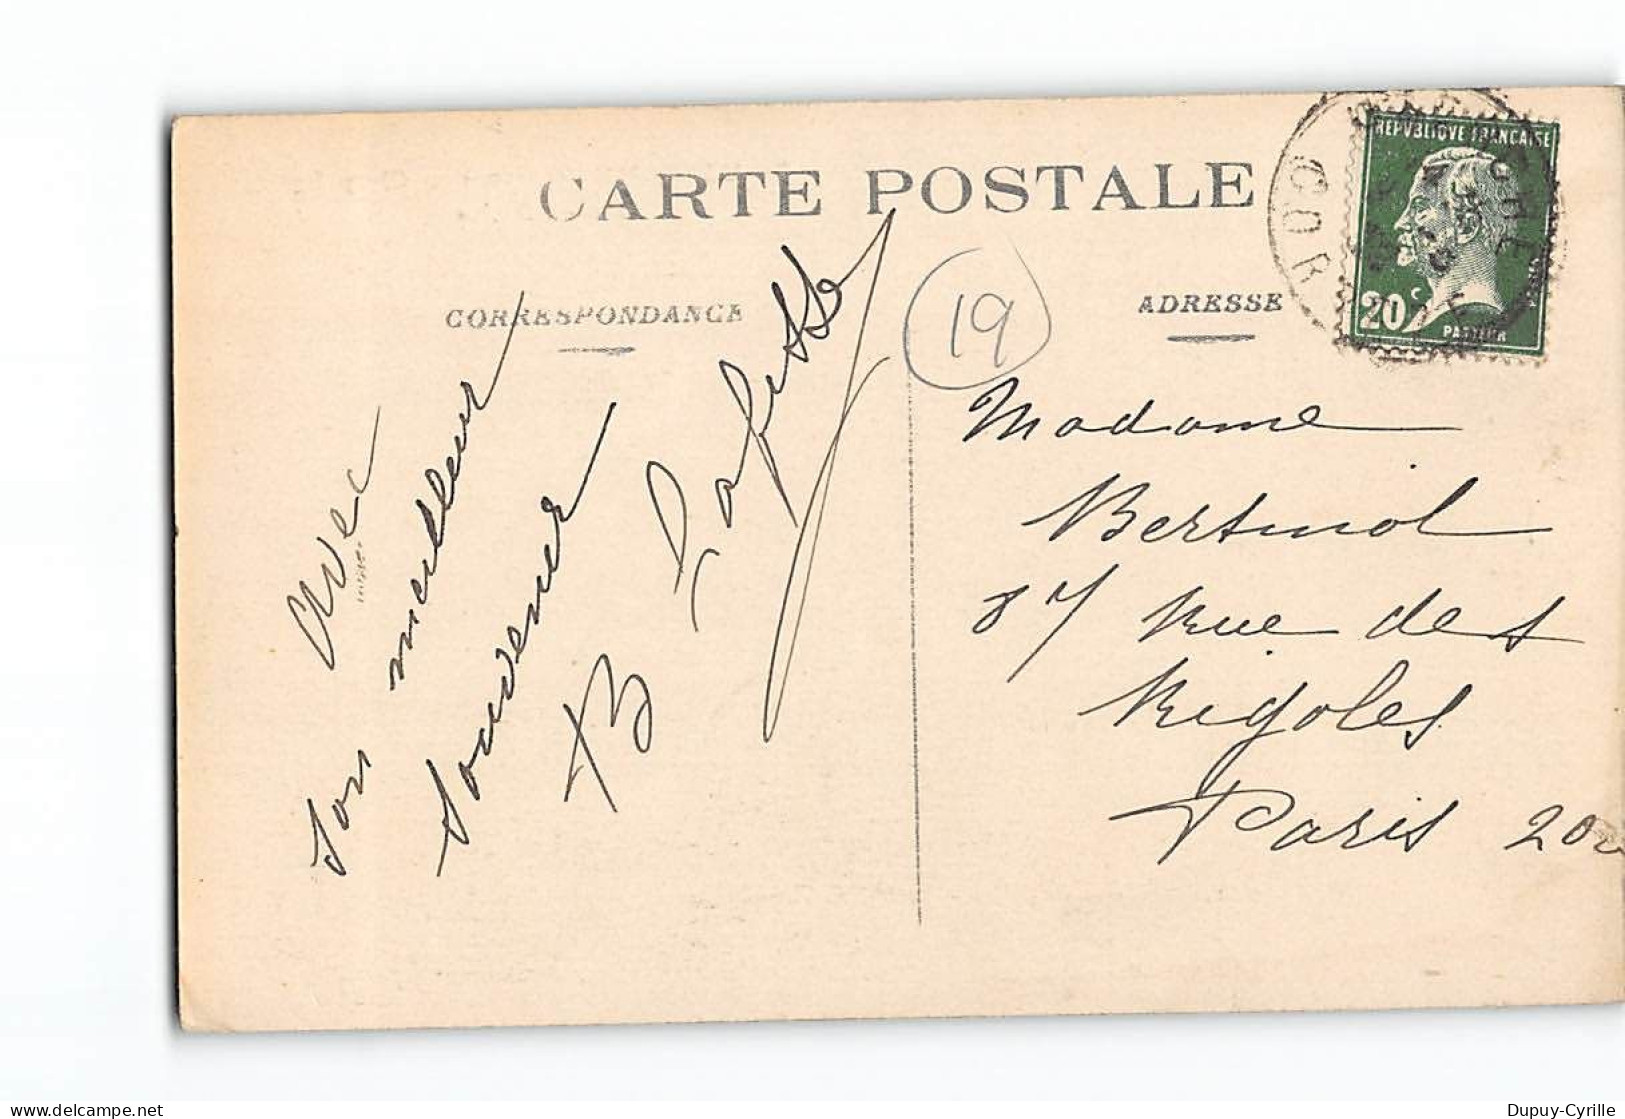 CARTE POSTALE
CORRESPONDANCE
ADRESSE
REPVBLIQVE FRANCAISE
20 c
PASTEUR
COR
19
Avec
son meilleur
Souvenir
B
Madame
Bertinol
87 Rue des
Rigoles
Paris 20
Dupuy-Cyrille